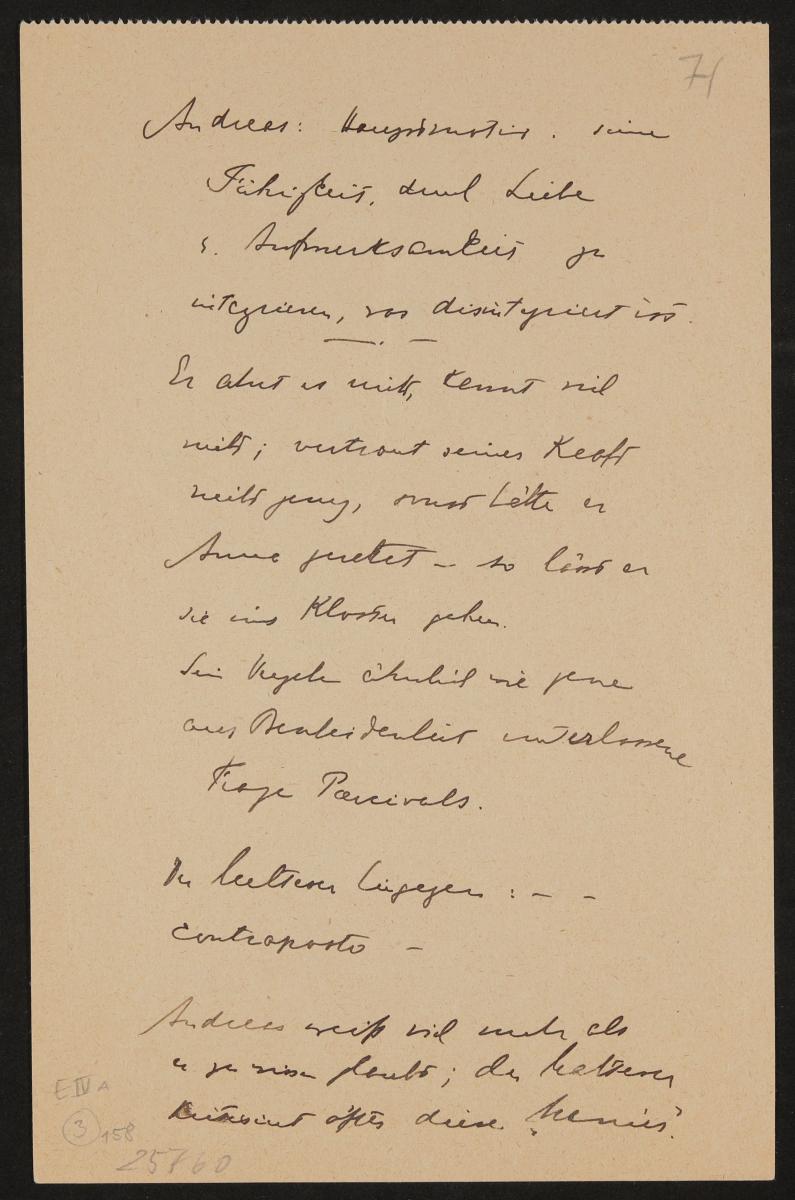 71
Andreas: Hauptmotiv. seine
Fähigkeit, durch Liebe
u. Aufmerksamkeit zu
integrieren, was disintegriert ist.
Er ahnt es nicht, kennt sich
nicht; vertraut seiner Kraft
nicht genug, sonst hätte er
Anna gerettet – so lässt er
sie ins Kloster gehen.
Sein ähnlich wie jene
aus Bescheidenheit unterlassene
Frage Parcivals.
Der Malteser hingegen: – –
contraposto –
Andreas weiß viel mehr als
er zu wissen glaubt; der Malteser
öfter diese
E IV A
3
158
25760